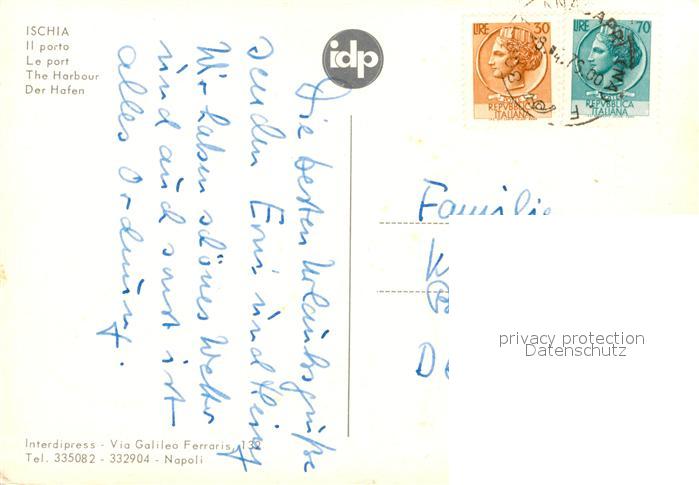 ISCHIA
Il porto
Le port
The Harbour
Der Hafen
idp
LIRE 30
REPVBBLICA
ITALIANA
LIRE 70
REPVBBLICA
ITALIANA
Die besten Urlaubsgrüße
senden Erni und Heinz
Wir haben schönes Wetter
und auch sonst ist
alles Ordnung.
Familie
privacy protection
Datenschutz
Interdipress - Via Galileo Ferraris, 132
Tel. 335082 - 332904 - Napoli